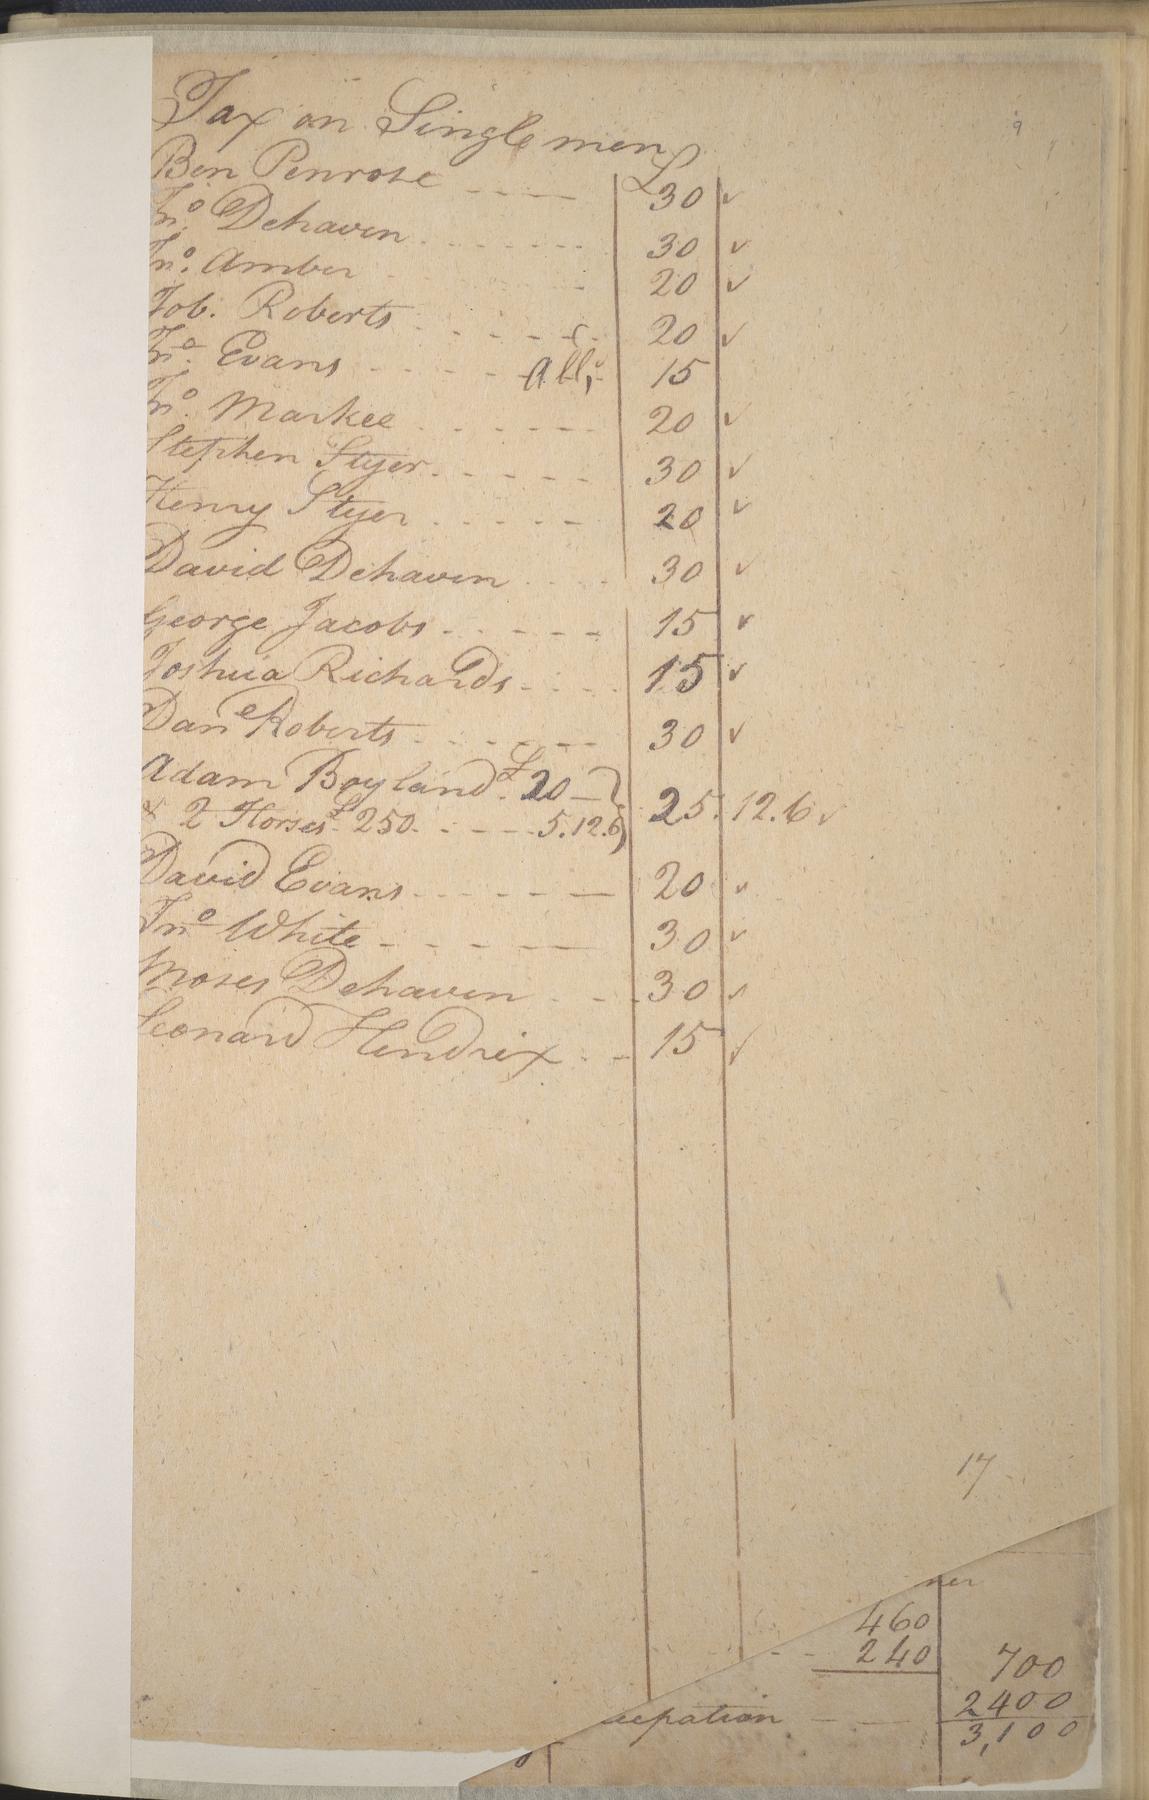 9
Tax on Single men
Ben Penrose ---- £30 ✓
Jno. Dehaven ------ 30 ✓
Jno. Amber - 20 ✓
Job. Roberts ----- 20 ✓
Jno. Evans ---- All; 15
Jno. Markee ------ 20 ✓
Stephen Styer ----- 30 ✓
Henry Styer ----- 20 ✓
David Dehaven ---- 30 ✓
George Jacobs ----- 15 ✓
Joshua Richards ---- 15 ✓
Dane Roberts ------ 30 ✓
Adam Boyland £20 -
& 2 Horses £250 ---- 5.12.6 25.12.6 ✓
David Evans ----- 20 ✓
Jno White ----- 30 ✓
Moses Dehaven --- 30 ✓
Leonard Hendrix -- 15 ✓
17
ner
460
-- 240 700
cupation -- 2400
3,100
0